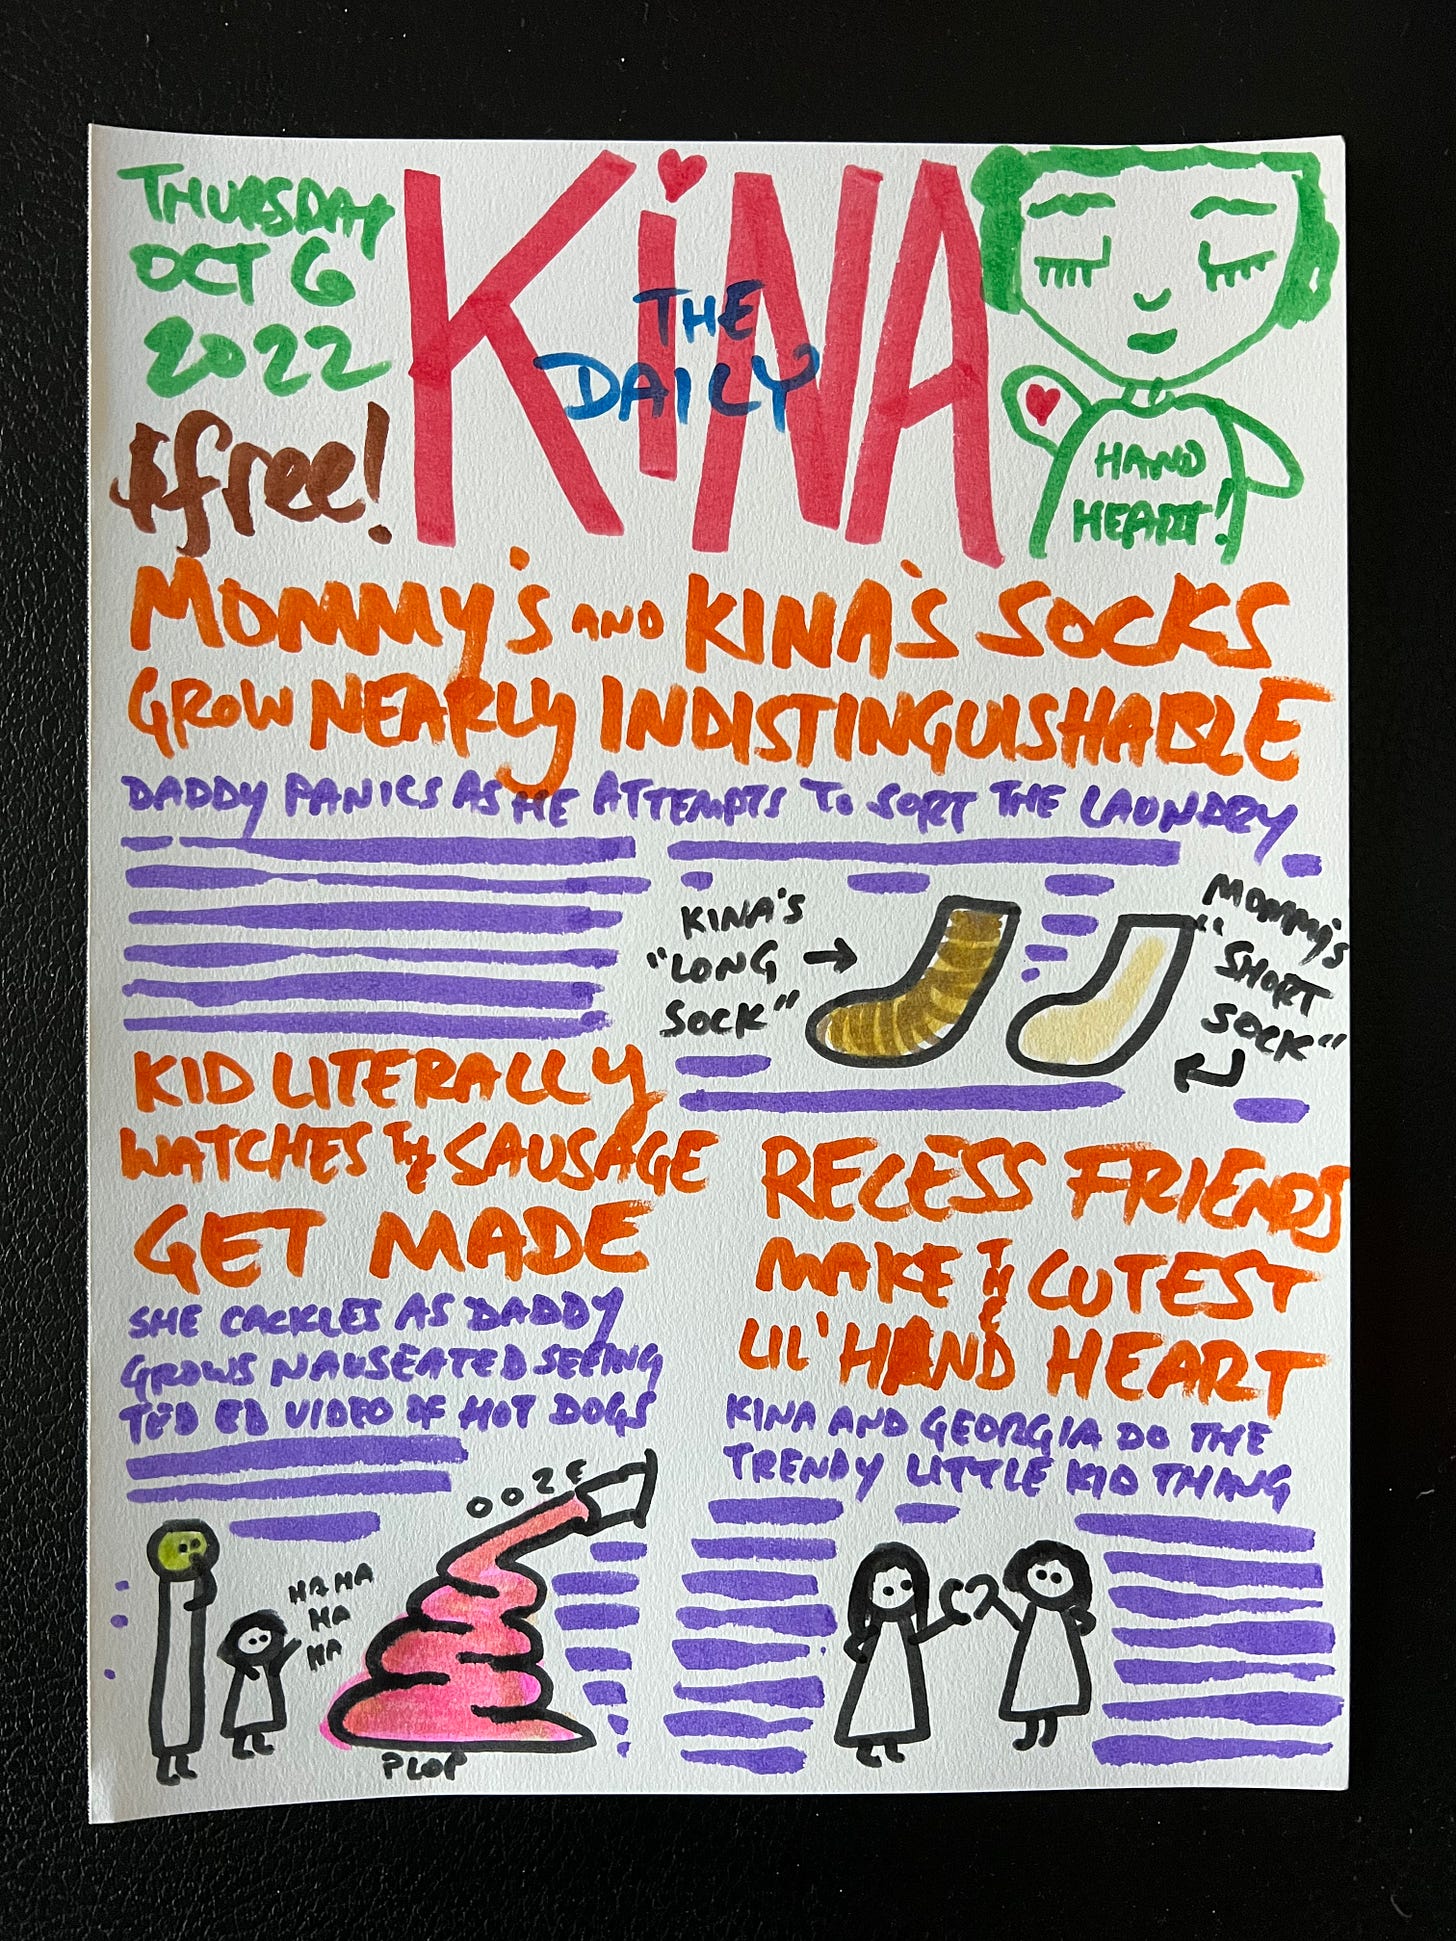 THURSDAY
OCT 6
2022
$free!
KiNA
THE
DAILY
HAND
HEART!
MOMMY'S AND KINA'S SOCKS
GROW NEARLY INDISTINGUISHABLE
DADDY PANICS AS HE ATTEMPTS TO SORT THE LAUNDRY
KINA'S
"LONG
SOCK"
MOMMY'S
"SHORT
SOCK"
KID LITERALLY
WATCHES THE SAUSAGE
GET MADE
SHE CACKLES AS DADDY
GROWS NAUSEATED SEEING
TED ED VIDEO OF HOT DOGS
OOZE
HA HA
HA
HA
PLOP
RECESS FRIENDS
MAKE THE CUTEST
LIL' HAND HEART
KINA AND GEORGIA DO THE
TRENDY LITTLE KID THING